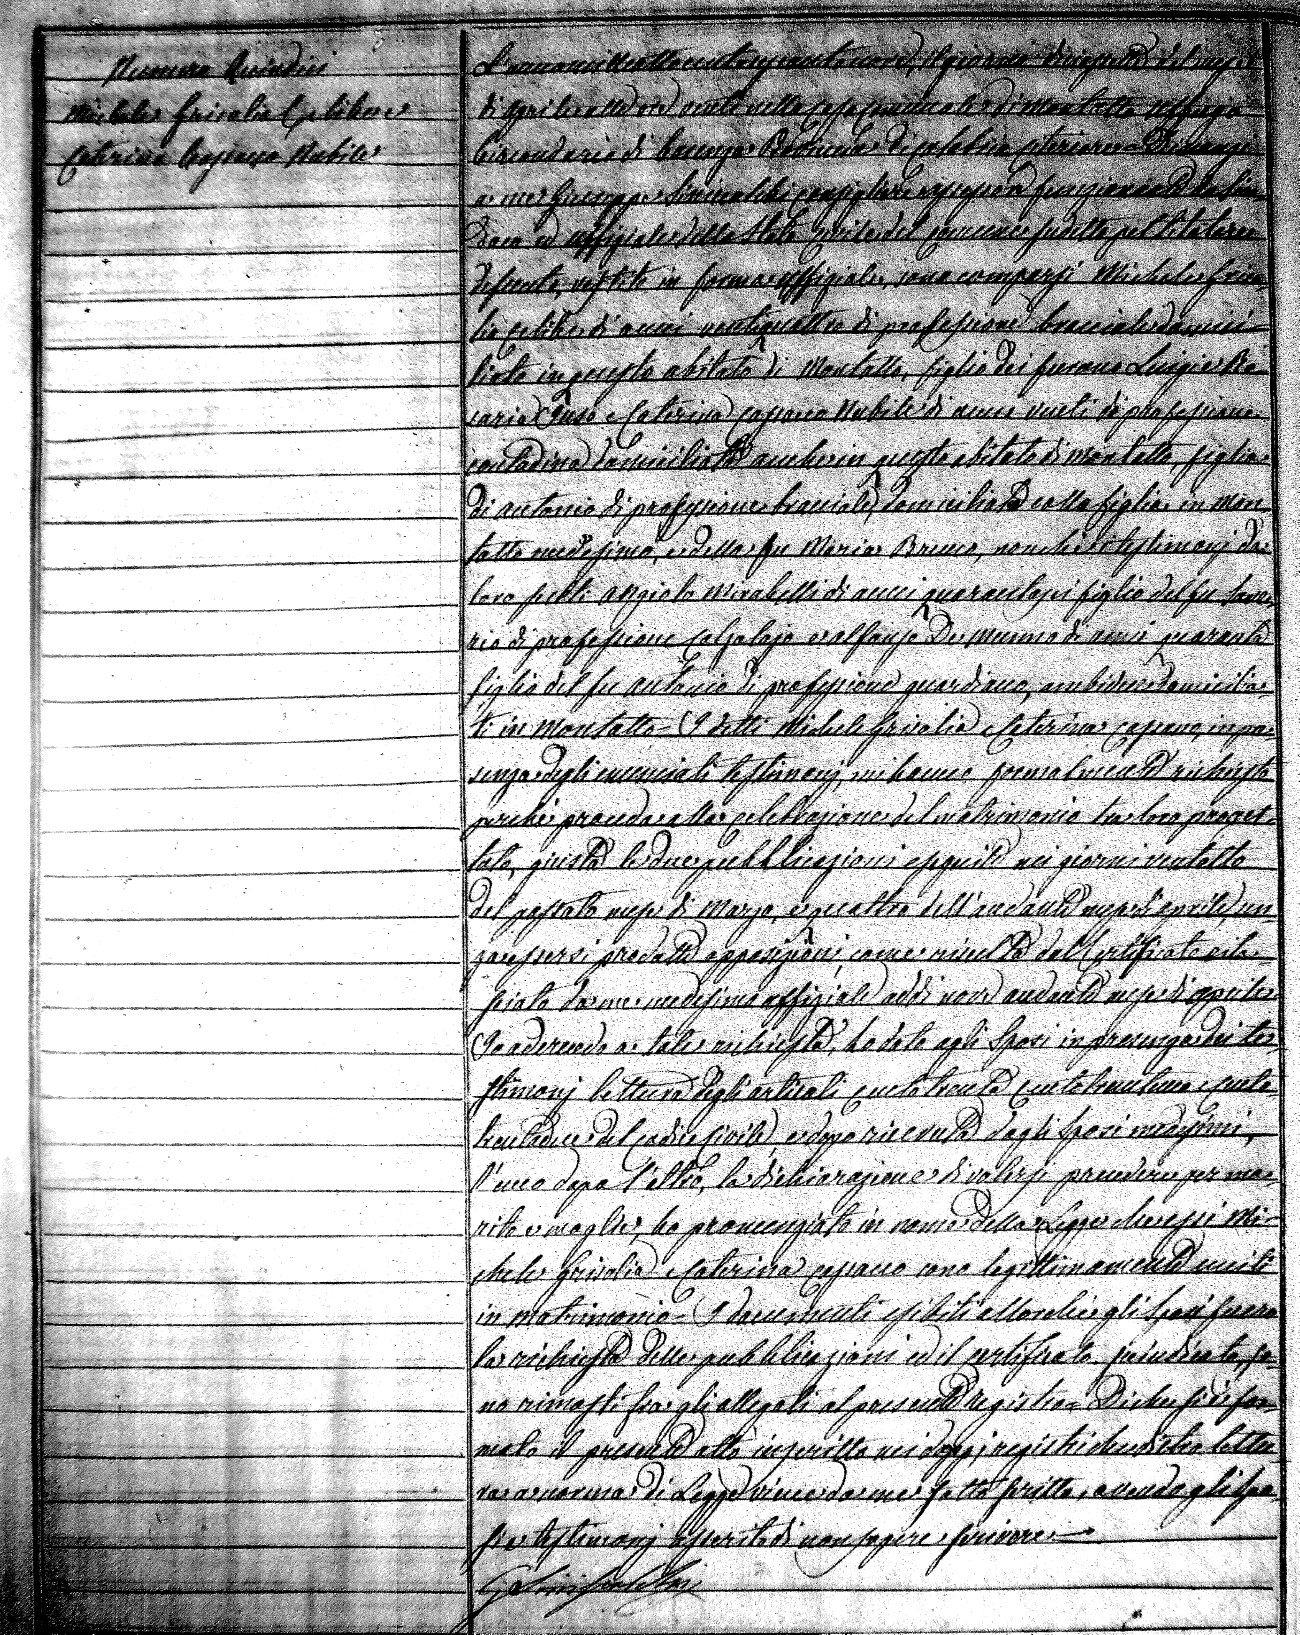 Numero Quindici
Michele Grisolia Celibe e
Caterina Capano Nubile
L'anno mille ottocento sessantanove, il giorno diciassette del mese
di Aprile alle ore venti nella casa comunale di Montalto Uffugo
Circondario di Cosenza Provincia di Calabria Citeriore = Dinanzi
a me Giuseppe consigliere assessore funzionante da Sin-
daco ed uffiziale dello Stato Civile del Comune sudetto pel titolare
assente, vestito in forma uffiziale, sono comparsi Michele Griso-
lia celibe di anni ventiquattro di professione bracciale domici-
liato in questo abitato di Montalto, figlio dei furono Luigi e Ro-
saria e Caterina Capano Nubile di anni venti di professione
contadina domiciliata anche in questo abitato di Montalto, figlia
di Antonio di professione bracciale, domiciliato colla figlia in Mon-
talto medesimo, e della fu Maria Bruno, nonché i testimonj da
loro scelti Angiolo Mirabelli di anni quarantasei figlio del fu Save-
rio di professione Calzolajo e Alfonso De Munno di anni quaranta
figlio del fu Antonio di professione guardiano, ambidue domicilia-
ti in Montalto = I detti Michele Grisolia e Caterina Capano, in pre-
senza degli enunciati testimonj, mi hanno formalmente richiesto
perché proceda alla celebrazione del matrimonio tra loro proget-
tato, giusta le due pubblicazioni eseguite nei giorni ventotto
del passato mese di Marzo, e quattro dell'andante mese di Aprile, sen-
za essersi prodotte opposizioni, come risulta dal Certificato rila-
sciato da me medesimo uffiziale addì nove andante mese di Aprile
Io aderendo a tale richiesta, ho dato agli Sposi in presenza dei te-
stimonj lettura degli articoli centotrenta centotrentuno e cento
trentadue del Codice Civile, e dopo ricevuta dagli Sposi medesimi,
l'uno dopo l'altro, la dichiarazione di volersi prendere per ma-
rito e moglie, ho pronunziato in nome della Legge che essi Mi-
chele Grisolia e Caterina Capano sono legittimamente uniti
in matrimonio = I documenti esibiti allorché gli Sposi fecero
la richiesta delle pubblicazioni ed il certificato so-
no rimasti fra gli allegati al presente registro = Di che si è for-
mato il presente atto inscritto nei doppj registri che dietro lettu
ra a norma di Legge viene da me sottoscritto, avendo gli Spo-
si e testimonj asserito di non sapere scrivere